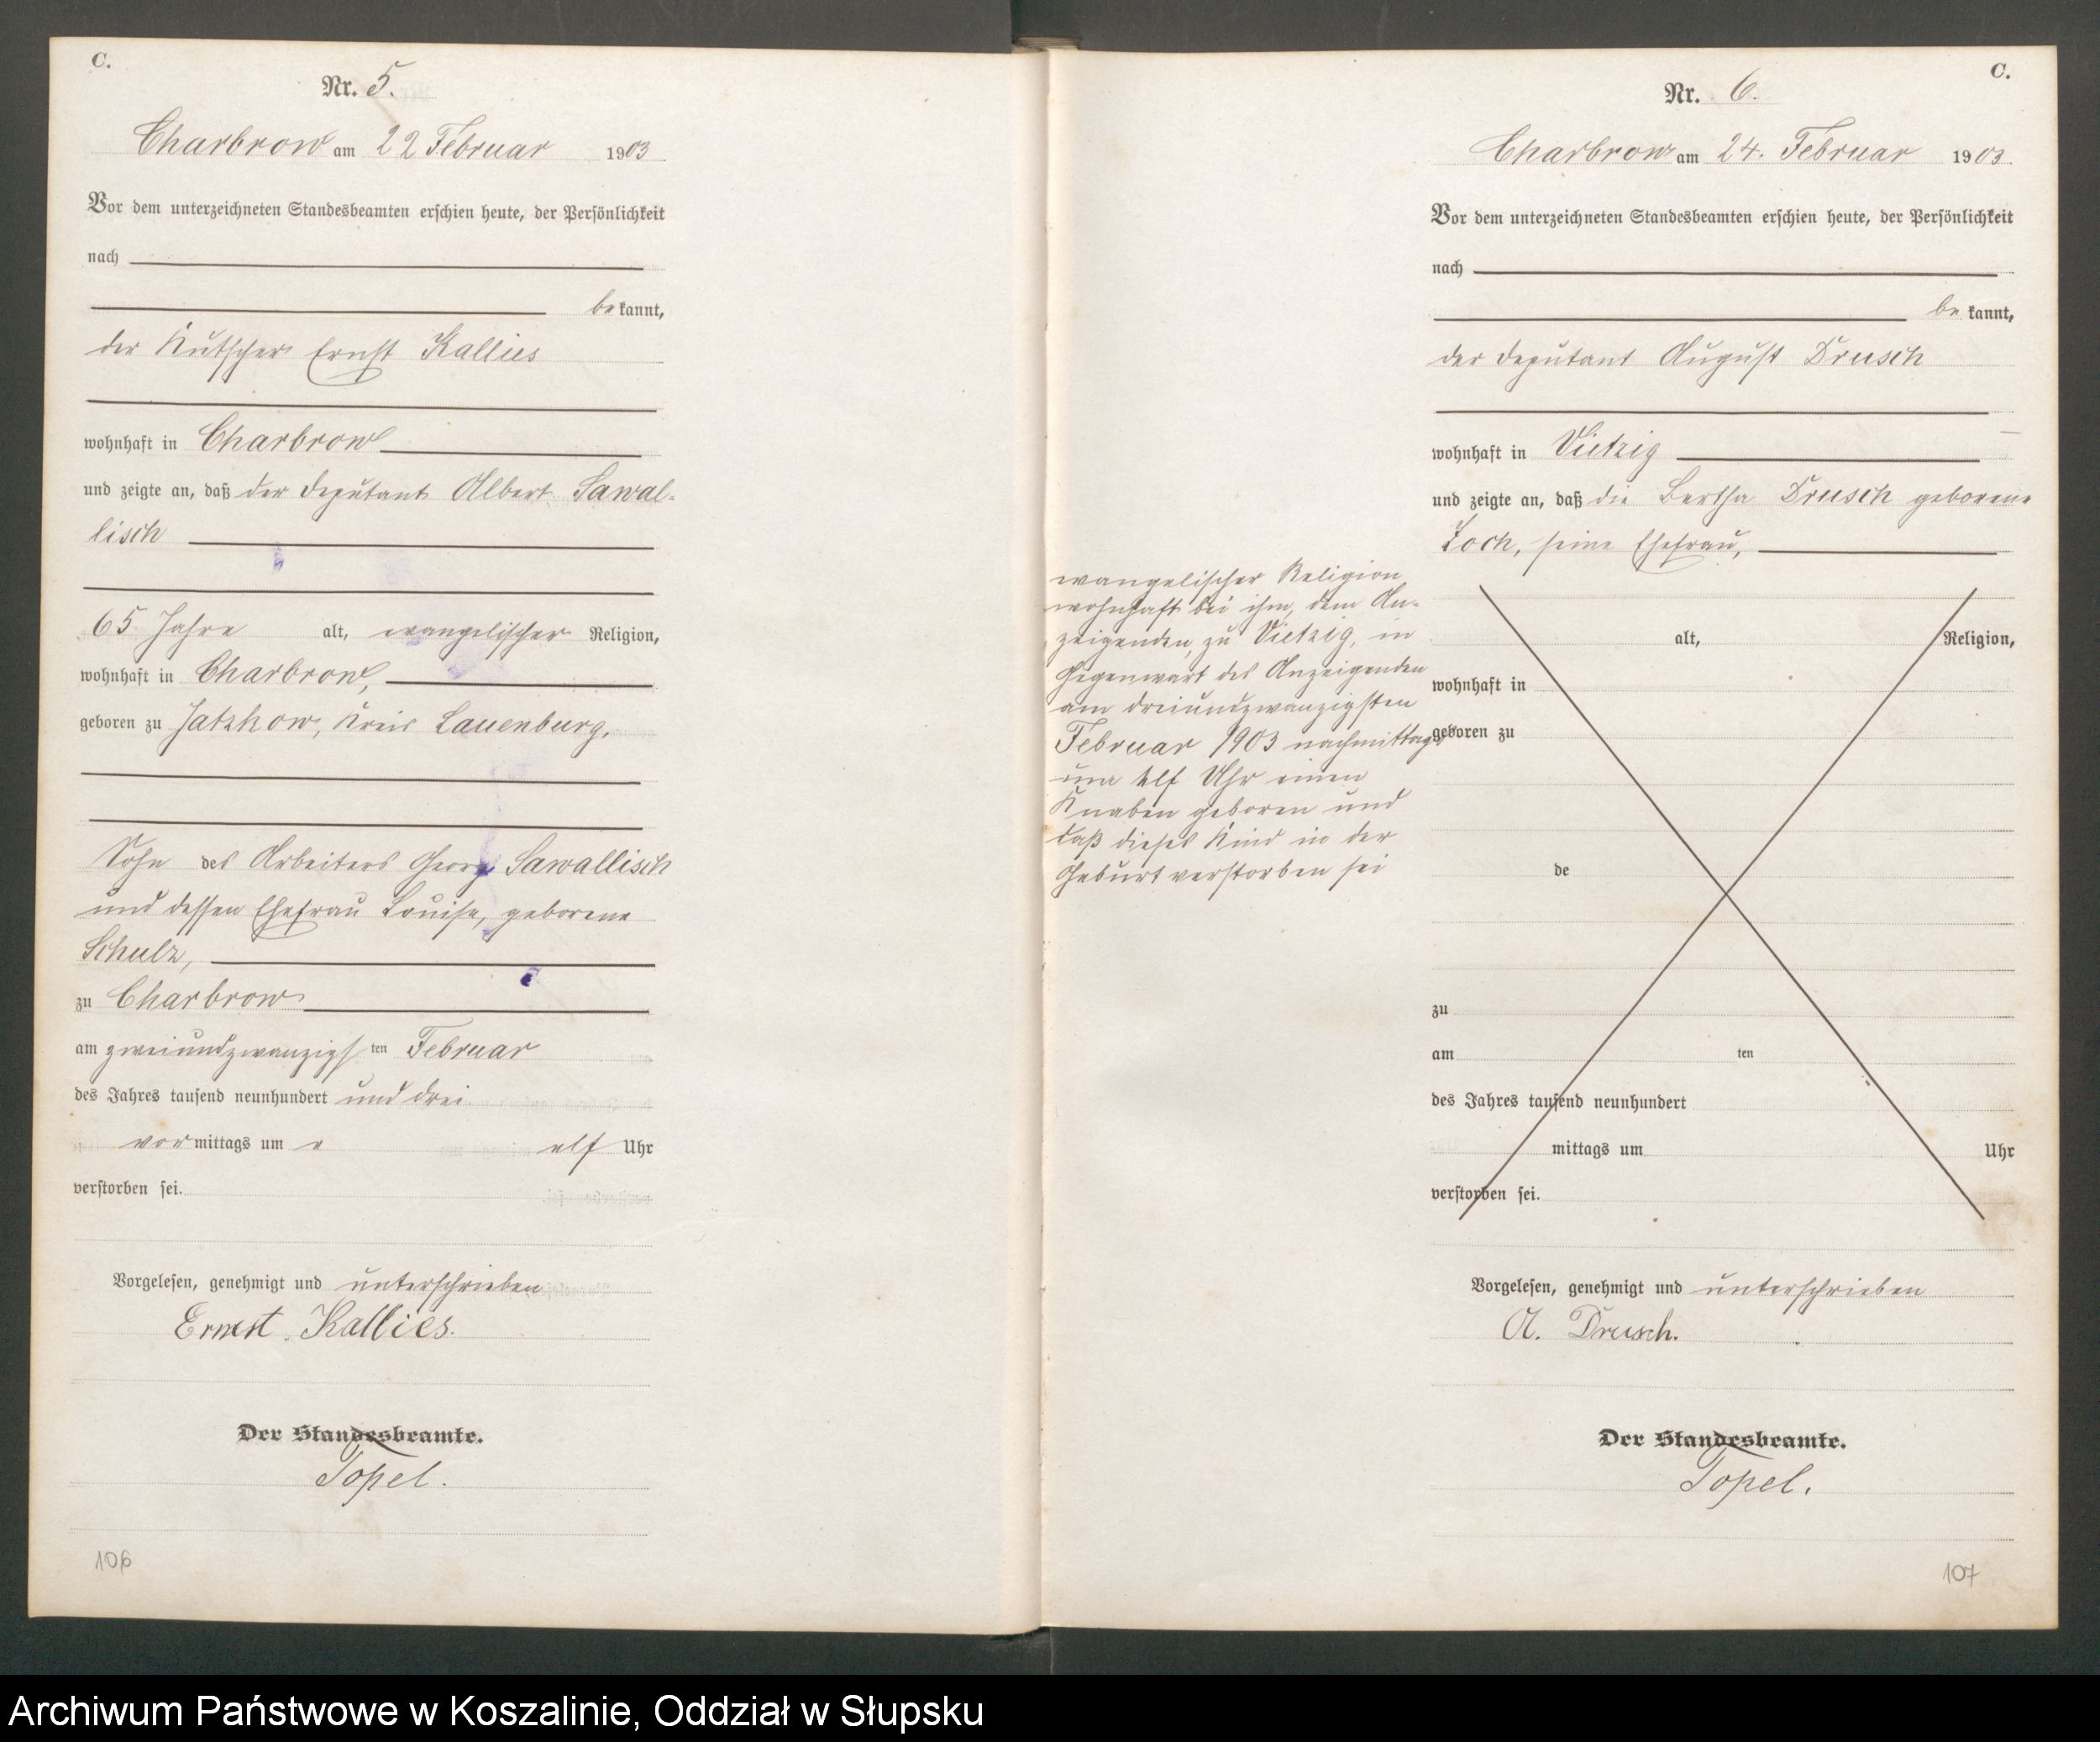 C.
Nr. 5.
Charbrow am 22 Februar 1903
Vor dem unterzeichneten Standesbeamten erschien heute, der Persönlichkeit
nach
be kannt,
der Kutscher Ernst Kallies
wohnhaft in Charbrow
und zeigte an, daß der Deputant Albert Sawal-
lisch
65 Jahre alt, evangelischer Religion,
wohnhaft in Charbrow,
geboren zu Jatzkow, Kreis Lauenburg,
Sohn des Arbeiters Georg Sawallisch
und dessen Ehefrau Louise, geborene
Schulz,
zu Charbrow
am zweiundzwanzigs ten Februar
des Jahres tausend neunhundert und drei
vor mittags um elf Uhr
verstorben sei.
Vorgelesen, genehmigt und unterschrieben
Ernst Kallies.
Der Standesbeamte.
Topel.
106
C.
Nr. 6.
Charbrow am 24. Februar 1903.
Vor dem unterzeichneten Standesbeamten erschien heute, der Persönlichkeit
nach
be kannt,
der Deputant August Drusch
wohnhaft in Vietzig
und zeigte an, daß die Bertha Drusch geborene
Zoch, seine Ehefrau,
evangelischer Religion
wohnhaft bei ihm, dem An-
zeigenden, zu Vietzig, in
Gegenwart des Anzeigenden
am dreiundzwanzigsten
Februar 1903 nachmittags
um elf Uhr einen
Knaben geboren und
daß dieses Kind in der
Geburt verstorben sei
alt, Religion,
wohnhaft in
geboren zu
de
zu
am ten
des Jahres tausend neunhundert
mittags um Uhr
verstorben sei.
Vorgelesen, genehmigt und unterschrieben
A. Drusch.
Der Standesbeamte.
Topel.
107
Archiwum Państwowe w Koszalinie, Oddział w Słupsku